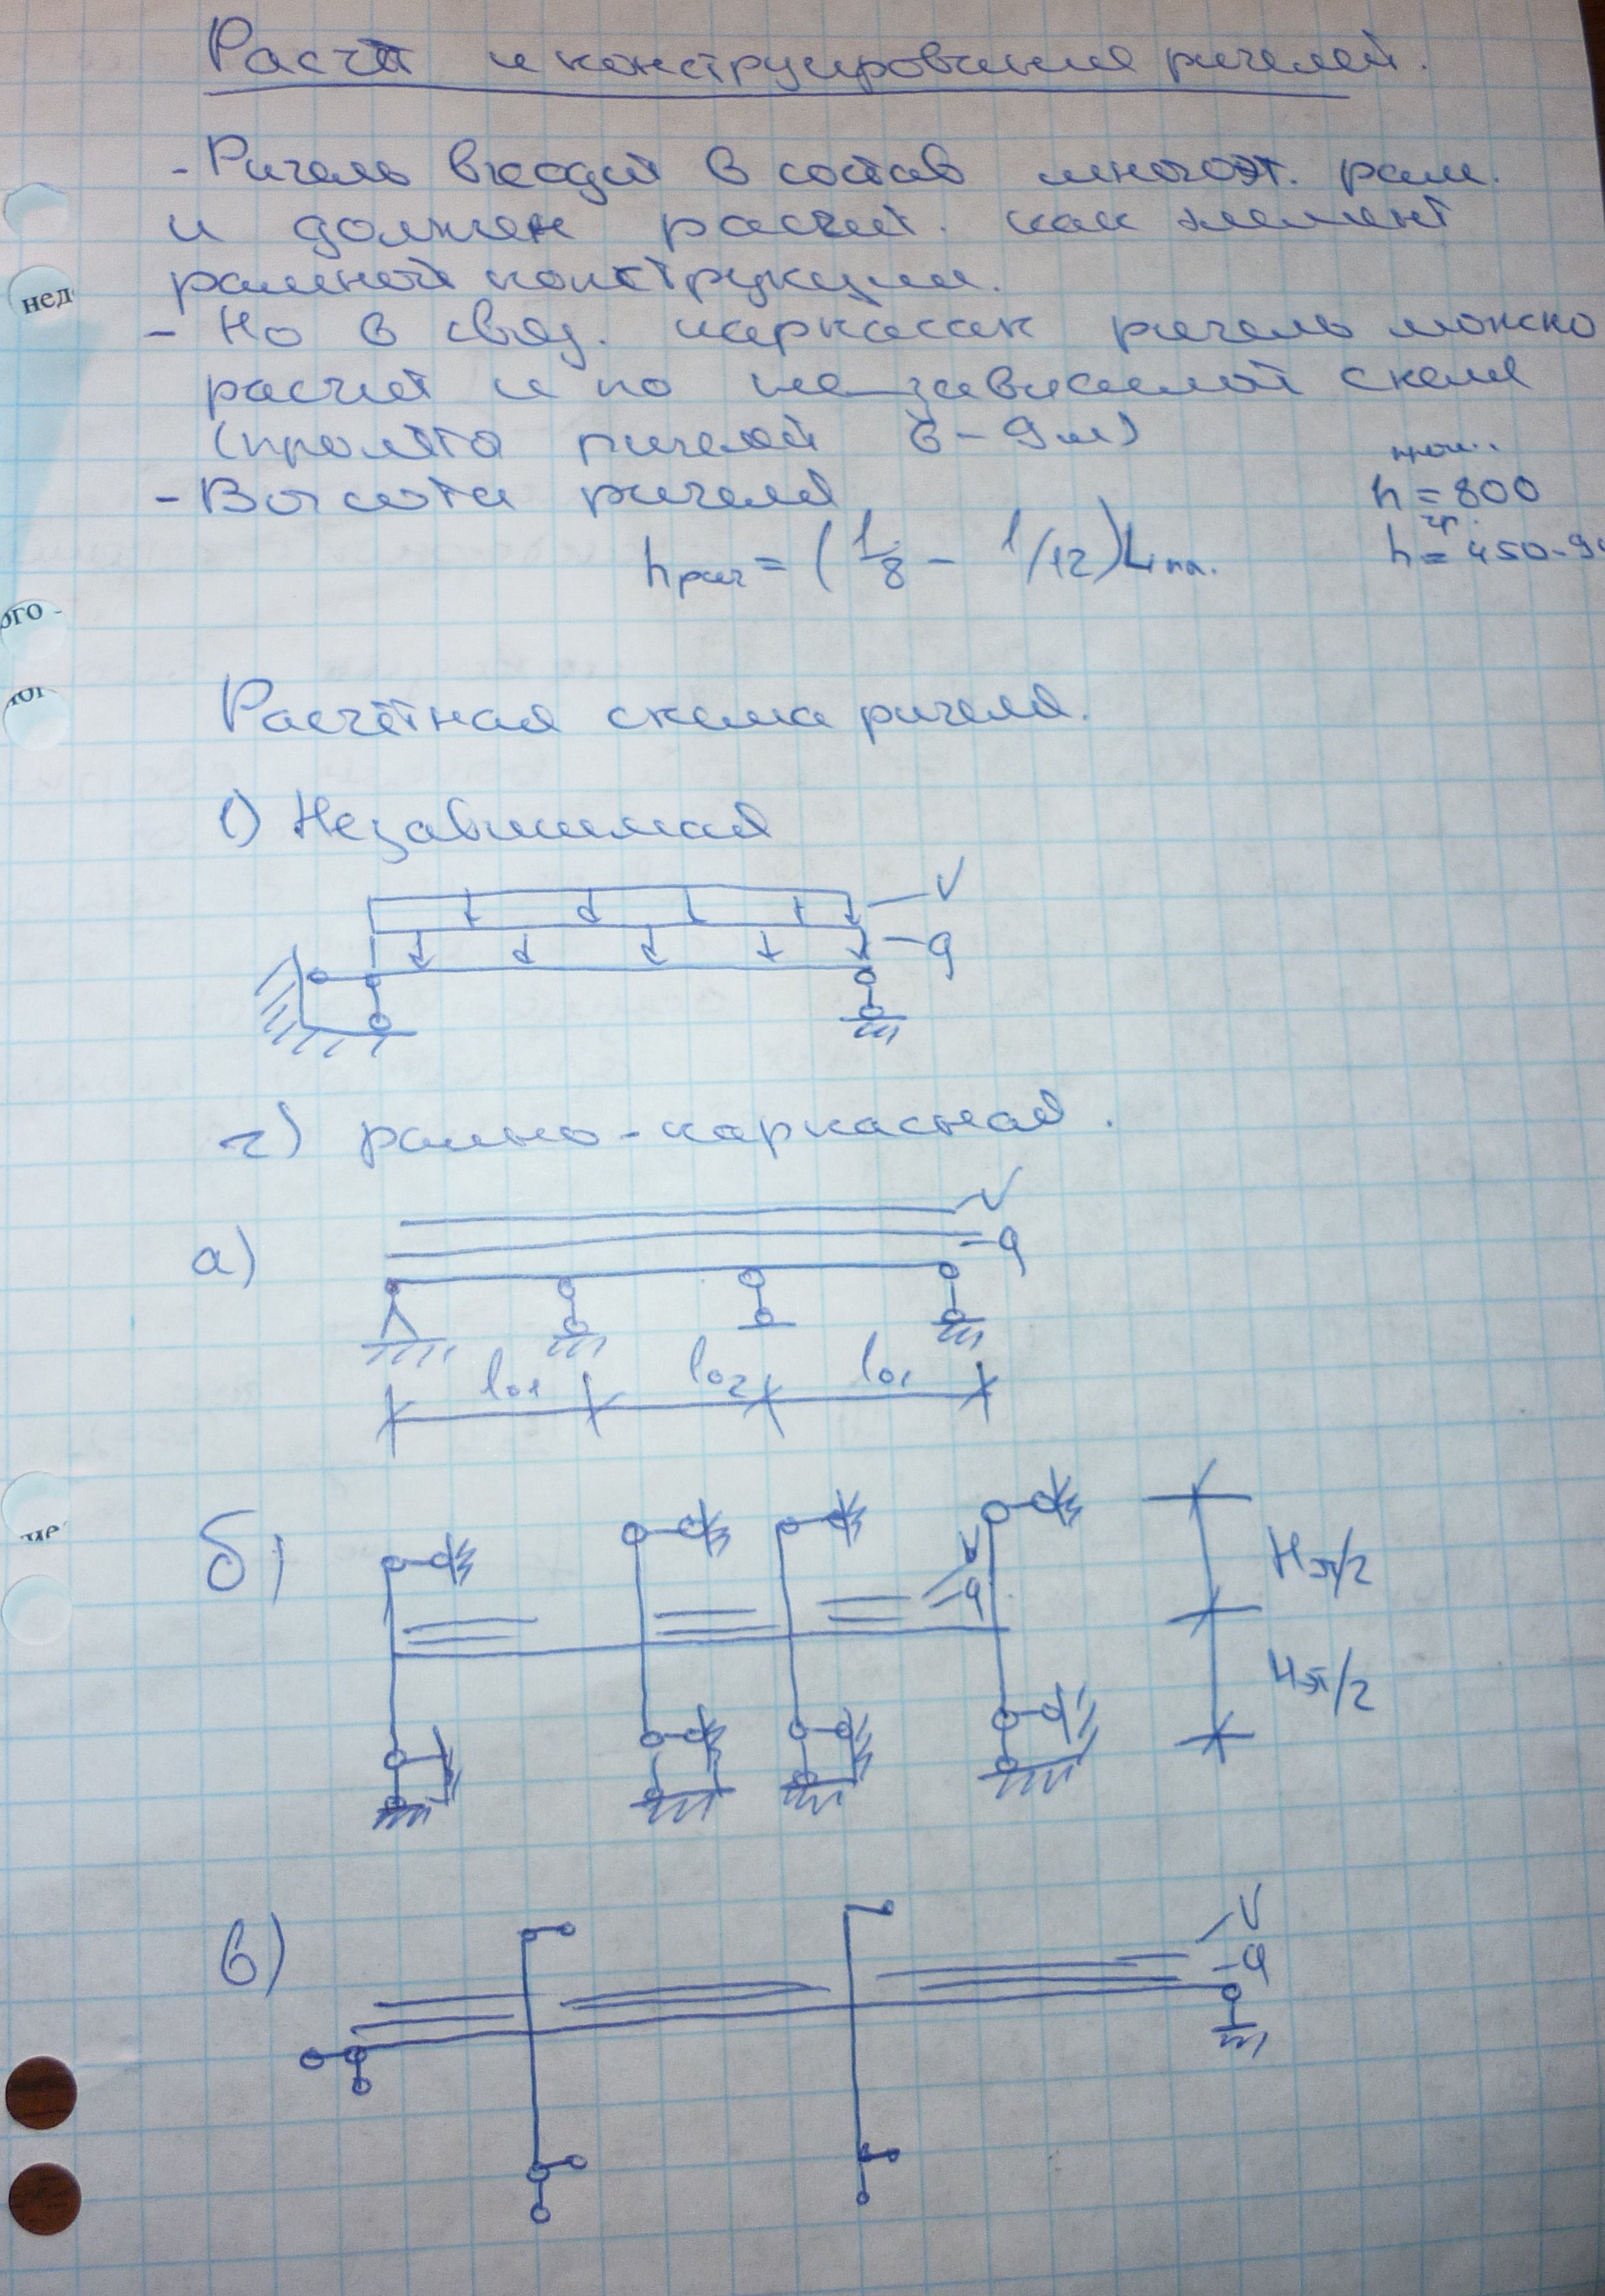 Расчёт и конструирование ригелей.
- Ригель входит в состав многоэт. рам.
и должен расчит. как элемент
рамной конструкции.
- Но в связ. каркасах ригель можно
расчит и по не-зависимой схеме
(пролёта ригелей 6-9м)
- Высота ригеля
h = 800
hриг = (1/8 - 1/12)Lпл.
h = 450-9
Расчётная схема ригеля.
1) Независимая
V
q
2) рамно-каркасная.
V
а)
q
l01 l02 l01
б)
V
q
Hэт/2
Hэт/2
в)
V
q
нед
ого -